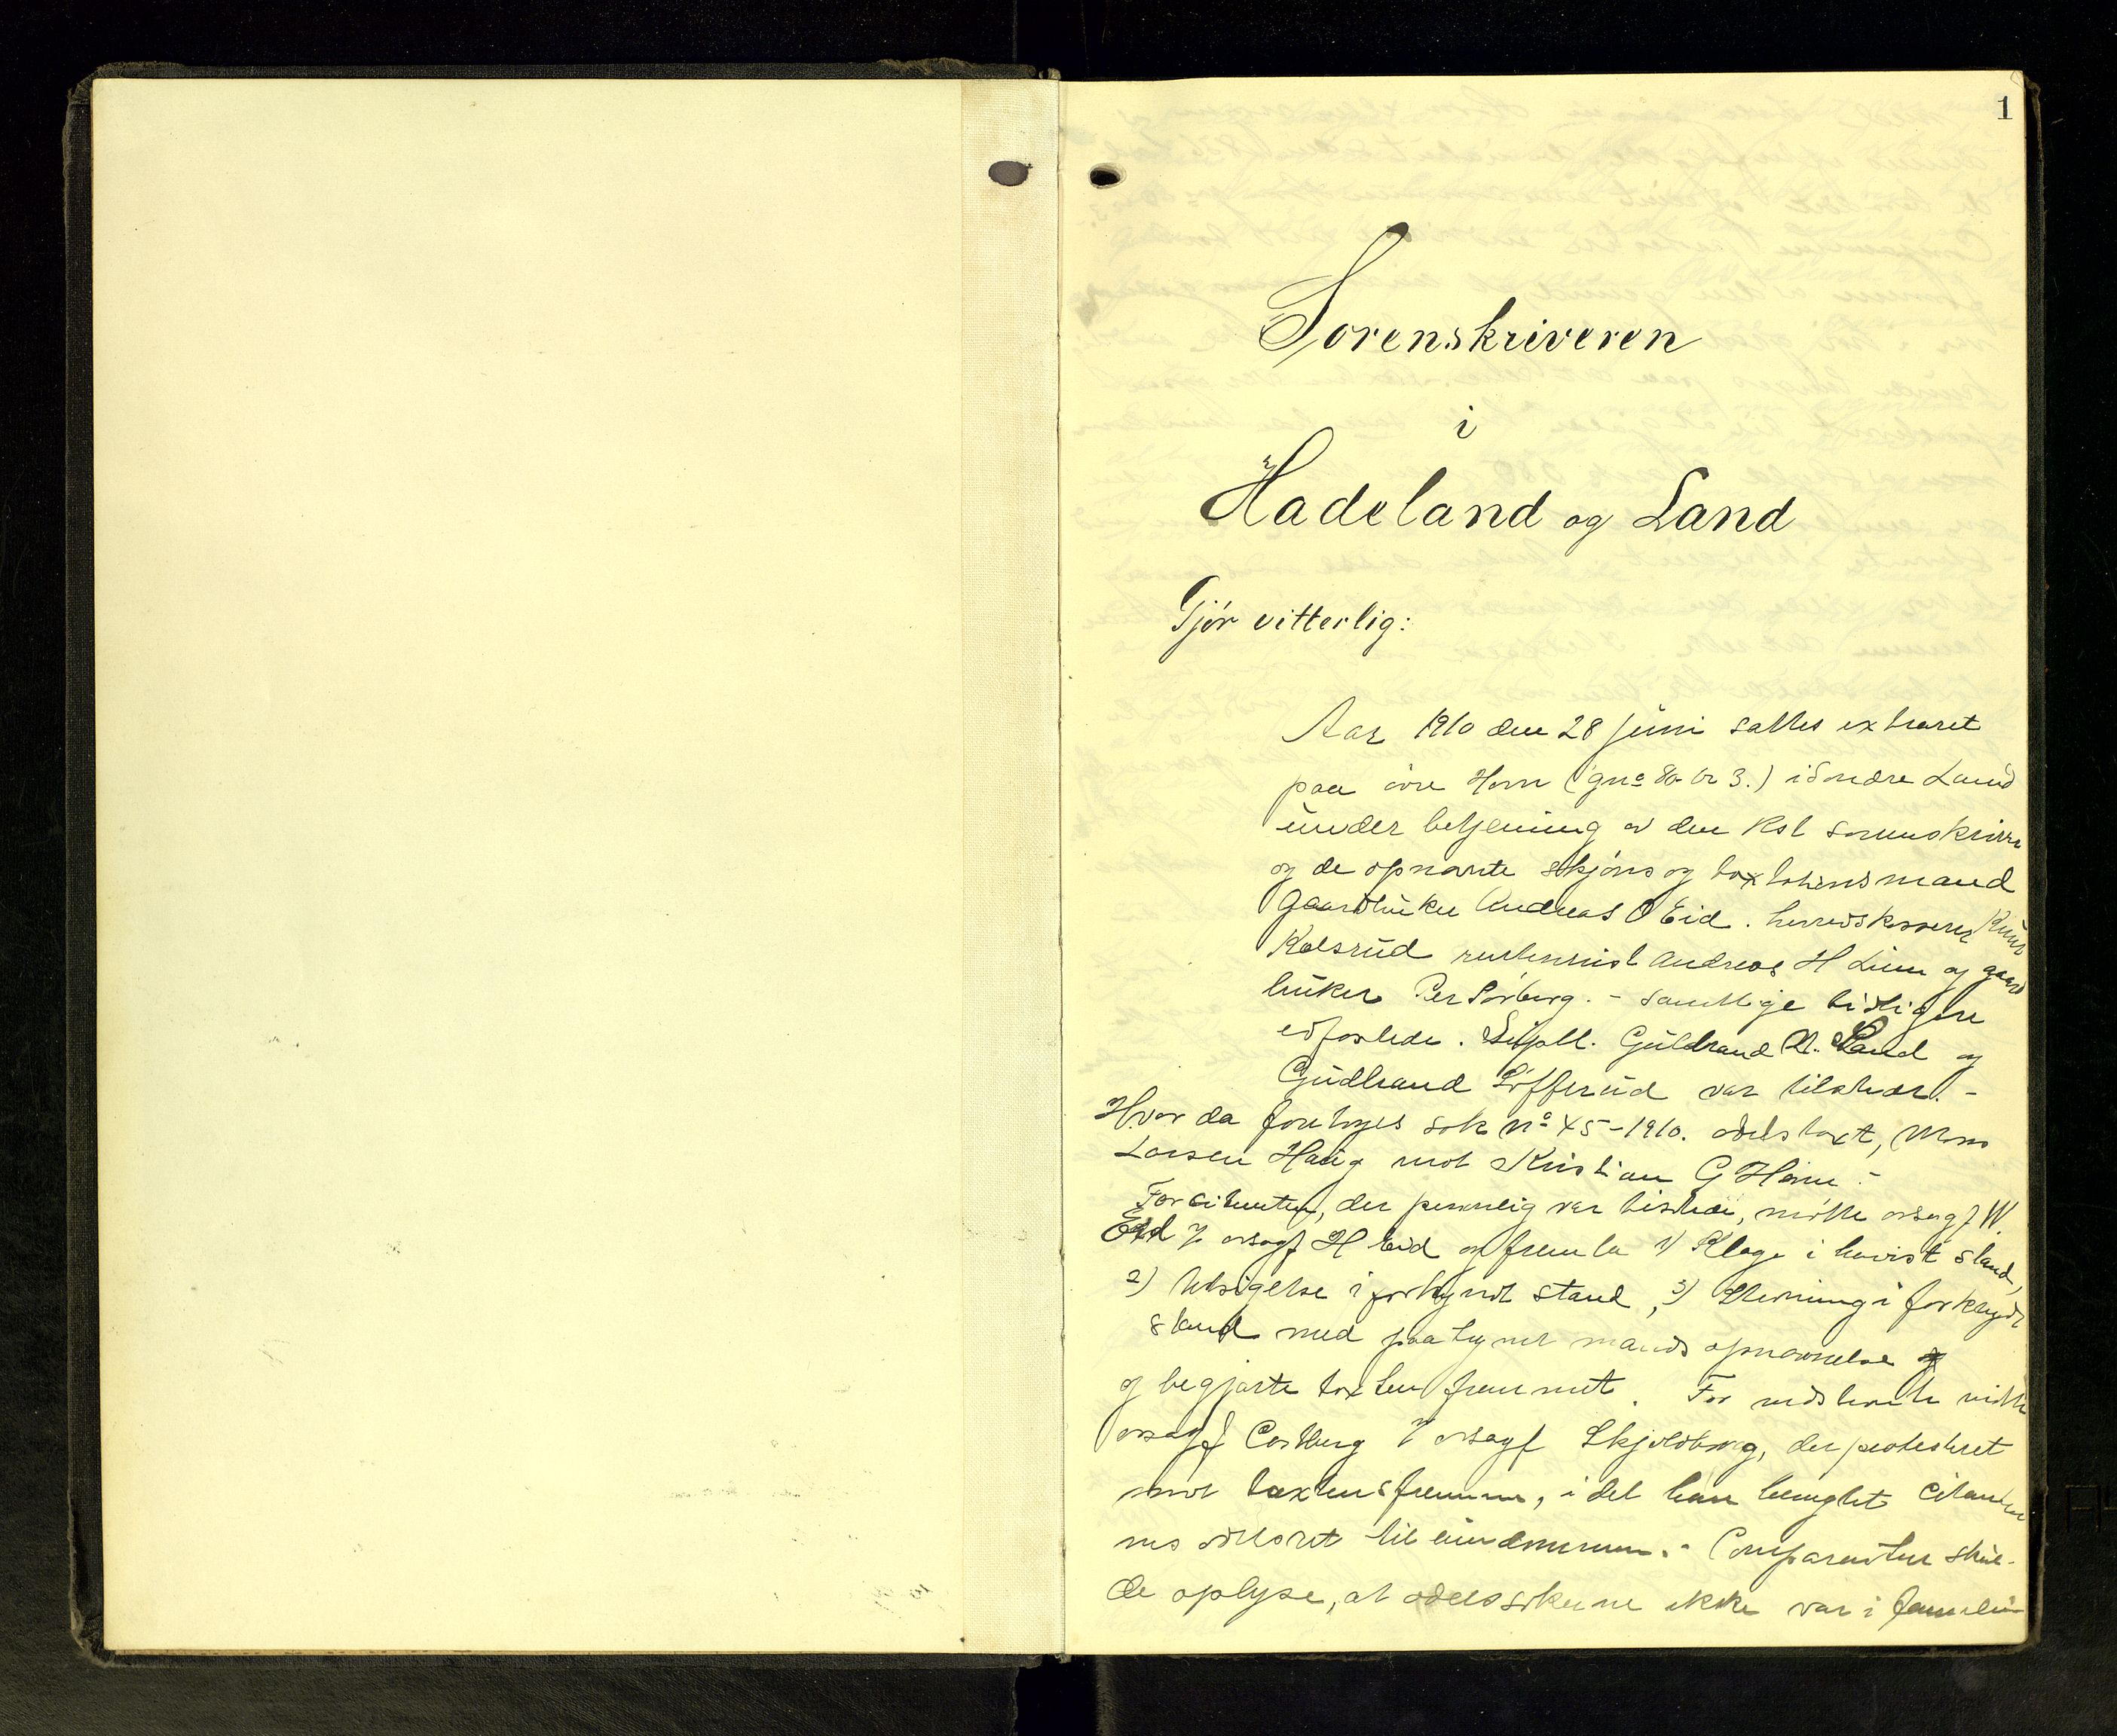 1
Sorenskriveren
i
Hadeland og Land
Gjør vitterlig:
Aar 1910 den 28 juni sattes extraret
paa øvre Horn (gno 80 br 3.) i Søndre Land
under betjening av den kst sorenskriver
og de opnævnte skjøns og taxtationsmænd
gaardbruker Andreas O Eid. herredskasserer
Kolsrud Andreas H Lium og gaard
bruker Per Sørberg. - samtlige tidligere
edfæstede. Suppll. Guldbrand N. Land og
Gudbrand Løfferud var tilstede. -
Hvor da foretoges sak No 45-1910. odelstaxt, Mons
Larsen Haug mot Kristian G Horn. -
For citanten, der personlig var tilstede, møtte orsagf W.
Eid v/ orsagf H Eid og fremla 1) Klage i hævist stand,
2) Utsigelse i forkyndt stand, 3) Stevning i forkyndt
stand med paategnet mænds opnævnelse
og begjærte taxten fremmet. For indstevnte møtte
orsagf Castberg v/ orsagf Skjoldborg, der protesteret
mot taxtens fremme, i det han benegtet citanter
nes odelsret til eiendommen. - Comparenten skul-
de oplyse, at odelssøkerne ikke var i familie